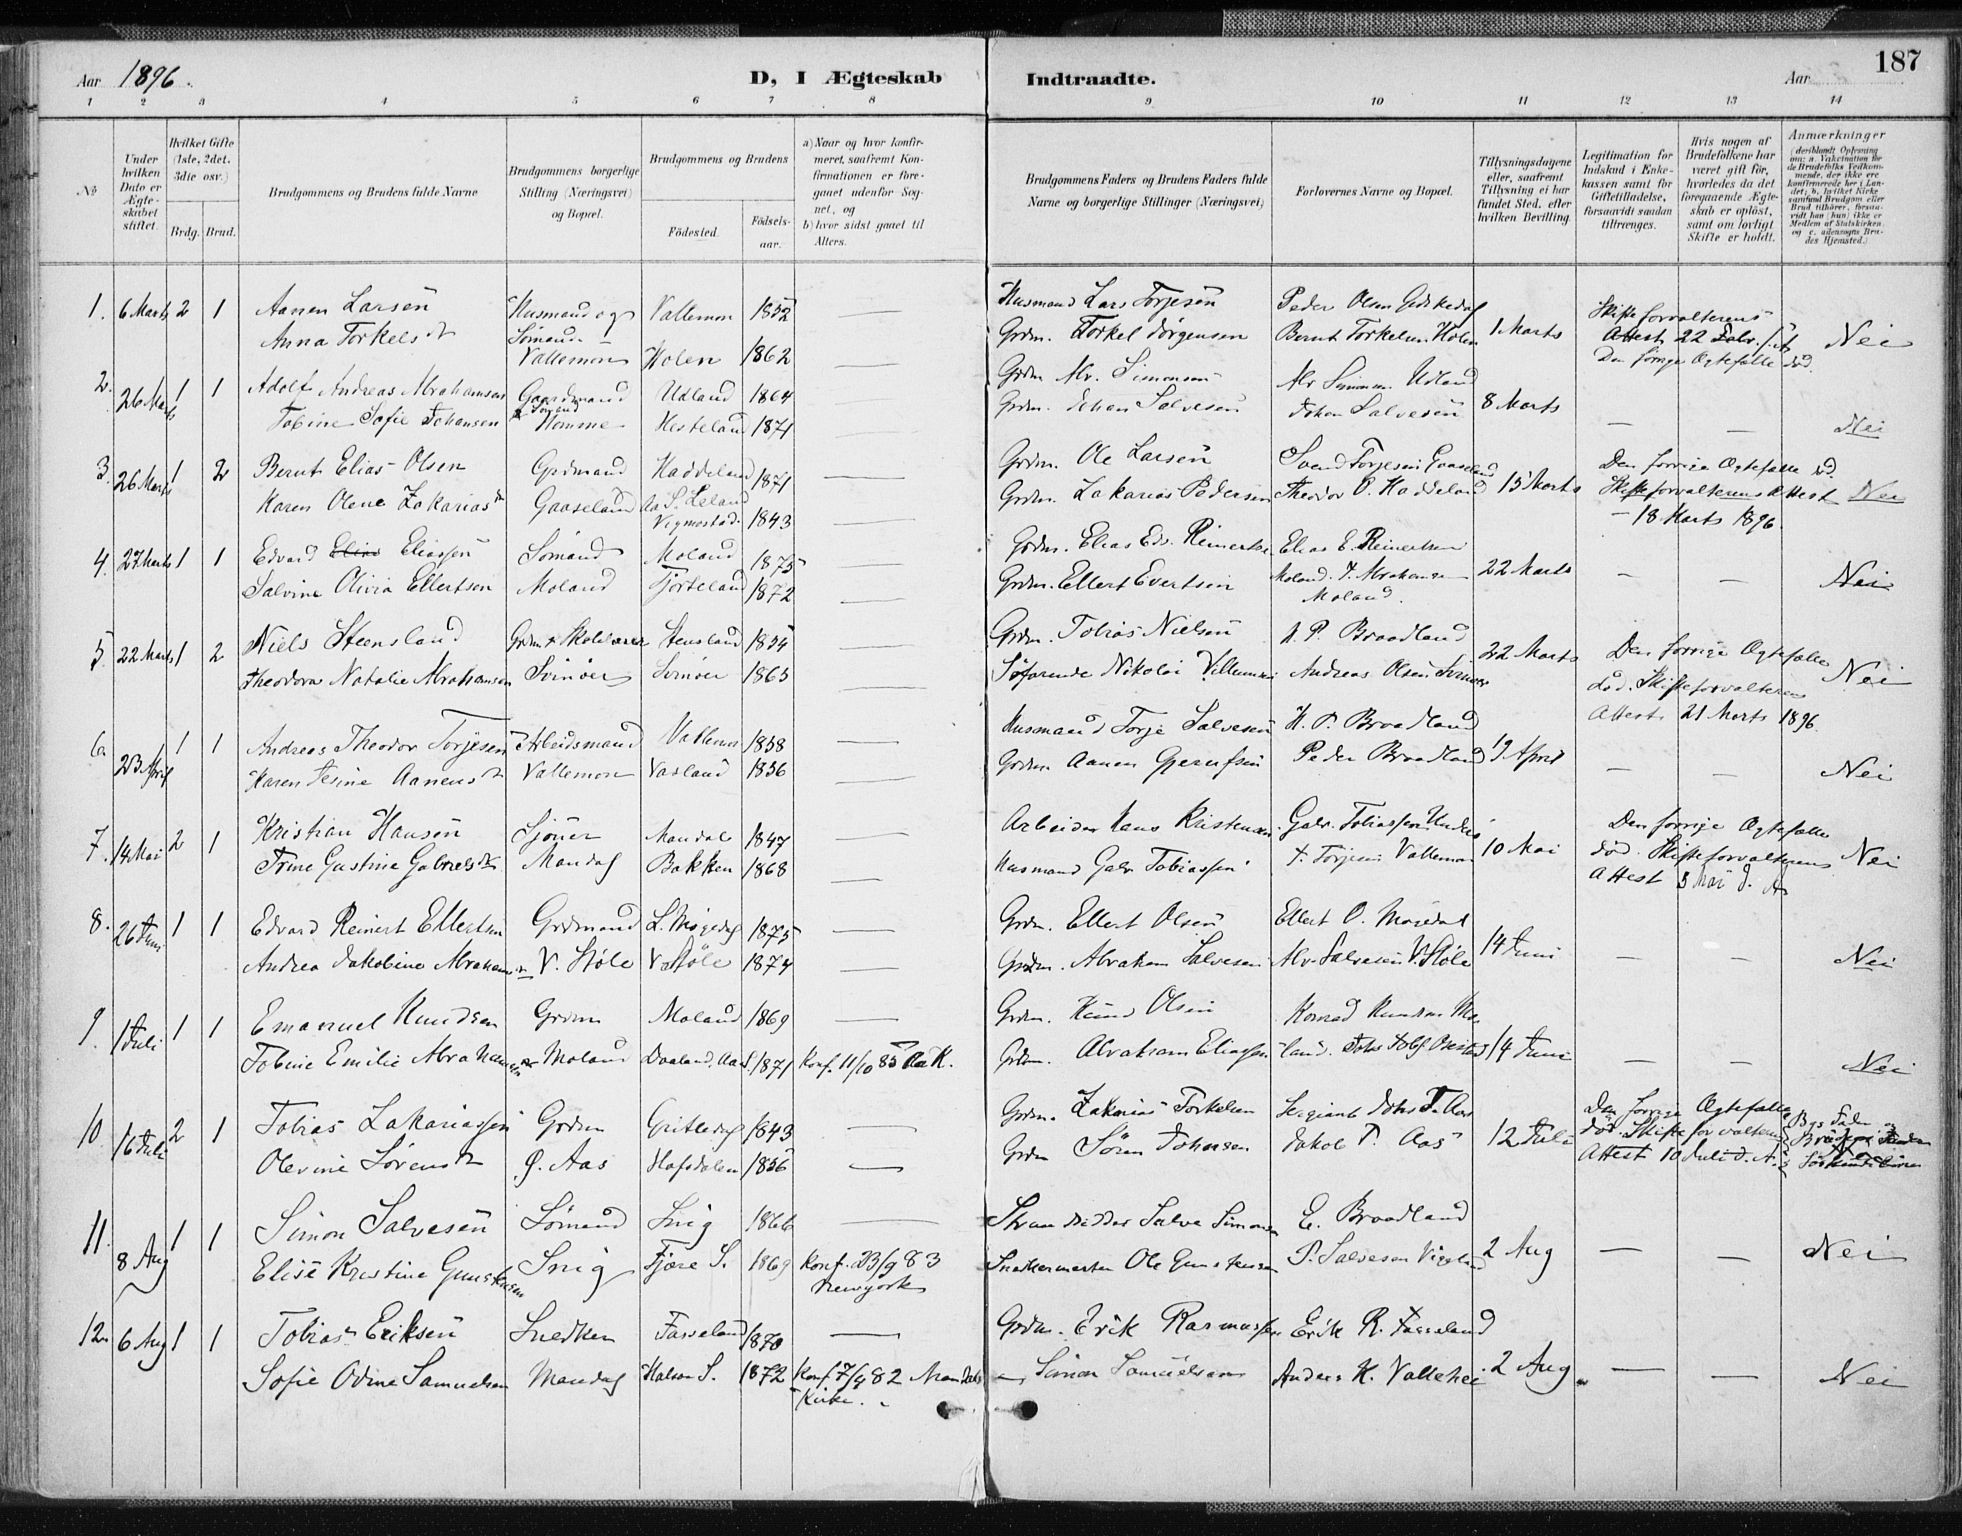 187
Aar 1896.
D, I Ægteskab Indtraadte. Aar
1 2 3 4 5 6 7 8 9 10 11 12 13 14
No
Under hvilken Dato er Ægteskabet stiftet.
Hvilket Gifte (1ste, 2det, 3die osv.)
Brdg. Brud.
Brudgommens og Brudens fulde Navne
Brudgommens borgerlige Stilling (Næringsvei) og Bopæl.
Brudgommens og Brudens
Födested. Födselsaar.
a) Naar og hvor konfirmeret, saafremt Konfirmationen er foregaaet udenfor Sognet, og
b) hvor sidst gaaet til Alters.
Brudgommens Faders og Brudens Faders fulde Navne og borgerlige Stillinger (Næringsvei)
Forlovernes Navne og Bopæl.
Tillysningsdagene eller, saafremt Tillysning ei har fundet Sted, efter hvilken Bevilling.
Legitimation for Indskud i Enkekassen samt for Giftetilladelse, forsaavidt saadan tiltrænges.
Hvis nogen af Brudefolkene har været gift før, hvorledes da det foregaaende Ægteskab er opløst, samt om lovligt Skifte er holdt.
Anmærkninger
1. 6 Marts 2 1 Aanen Larsen Husmand og Vallemon 1852 — Husmand Lars Torjesen Peder Olsen 1 Marts Skifteforvalterens
Anna Torkelsdt Sömand Vallemon Holen 1862 — Grdm. Torkel Jörgensen Bernt Torkelsen Holen Attest 22 Febr. Nei
Den forrige Ægtefælle död.
2. 26 Marts 1 1 Adolf Andreas Abrahamsen Gaardmand Udland 1864 — Grdm. Abr. Simonsen Abr Simonsen Udland 8 Marts
Tobine Sofie Johansen Sömand Homme Hesteland 1871 — Grdm. Johan Salvesen Johan Salvesen — — Nei
3. 26 Marts 1 2 Bernt Elias Olsen Grdmand Haddeland 1871 — Grdm. Ole Larsen Svend Torjesen Gaaseland 15 Marts Den forrige Ægtefælle död.
Karen Olene Zakariasdt Gaaseland Vigmostad 1843 — Grdm. Zakarias Pedersen Theodor O. Haddeland Skifteforvalterens Attest Nei
18 Marts 1896.
4. 27 Marts 1 1 Edvard Eliassen Sömand Moland 1875 — Grdm. Elias Edv. Reinertsen Elias E. Reinertsen 22 Marts
Salvine Olivia Ellertsen Moland Tjorteland 1872 — Grdm. Ellert Evertsen Moland. T. Abrahamsen Moland. — — Nei
5. 22 Marts 1 2 Niels Steensland Grdm & Skolelærer Stensland 1854 — Grdm. Tobias Nielsen H. P. Braadland 22 Marts Den forrige Ægtefælle
Theodora Natalie Abrahamsen Svinöer Svinöer 1865 — Söfarende Nikolai Villumsen Andreas Olsen Svinöer död. Skifteforvalterens Nei
Attest 21 Marts 1896.
6. 23 April 1 1 Andreas Theodor Torjesen Arbeidsmand Vallemon 1858 — Husmand Torje Salvesen H. P. Braadland 19 April
Karen Aanensdt Vallemon 1856 — Grdm. Aanen Peder Braadland — — Nei
7. 14 Mai 2 1 Kristian Hansen Sjöuer Mandal 1847 — Arbeider Hans Kristensen Gabr. Tobiassen 10 Mai Den forrige Ægtefælle
Trine Gustine Gabrielsdt Mandal Bakken 1868 — Husmand Gabr Tobiassen T. Torjesen Vallemon död. Skifteforvalterens Nei
Attest 5 Mai d. A
8. 26 Juni 1 1 Edvard Reinert Ellertsen Grdmand L. Mögedal 1875 — Grdm. Ellert Olsen Ellert O. Mögedal 14 Juni
Andrea Jakobine Abrahamsen V. Stöle V Stöle 1874 — Grdm. Abraham Salvesen Abr Salvesen V. Stöle — — Nei
9. 1 Juli 1 1 Emanuel Knudsen Grdm Moland 1869 Grdm. Knud Olsen Konrad Knudsen Mo-
Tobine Emilie Abrahamsen Moland Daaland, 1871 Konf. 11/10 85 Grdm. Abraham Eliassen land. 14 Juni — — Nei
10. 16 Juli 2 1 Tobias Zakariassen Grdm 1843 — Grdm. Zakarias Torkelsen Sergiant Johs T. Aas 12 Juli Den forrige Ægtefælle
Olevine Sörensdt Ö. Aas Hafsdalen 1856 — Grdm Sören Johnsen Jakob T. Aas död. Skifteforvalterens
Attest 10 Juli d. A.
11. 8 Aug 1 1 Simon Salvesen Sömand Snig 1866 — Salve Simonsen E. Braadland 2 Aug
Elise Kristine Gunstensen Snig Fjære S. 1869 Konf. 23/9 83 Newyork Snedkermester Ole Gunstensen P. Salvesen — — Nei
12. 6 Aug 1 1 Tobias Eriksen Snedker Fasseland 1870 — Grdm. Erik Rasmussen Erik R. Fasseland 2 Aug.
Sofie Odine Samuelsen Mandal Halsaa S. 1872 Konf 82 Mandals Kirke. Simon Samuelsen Anders K. Vallehei — — Nei